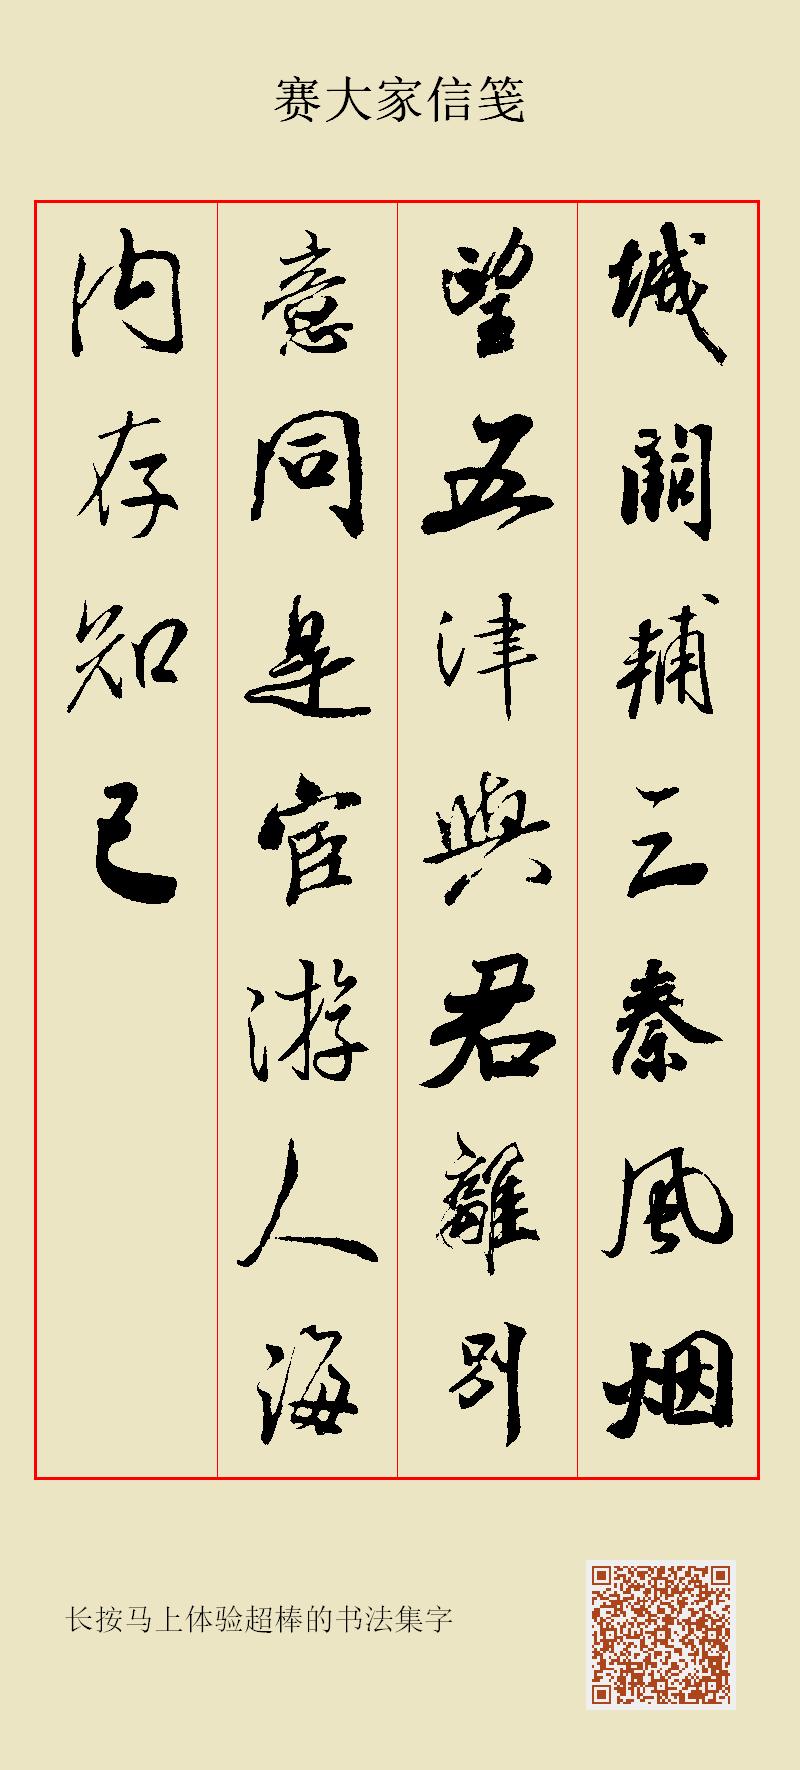 赛大家信笺
城闕輔三秦風烟
望五津與君離別
意同是宦游人海
内存知己
长按马上体验超棒的书法集字